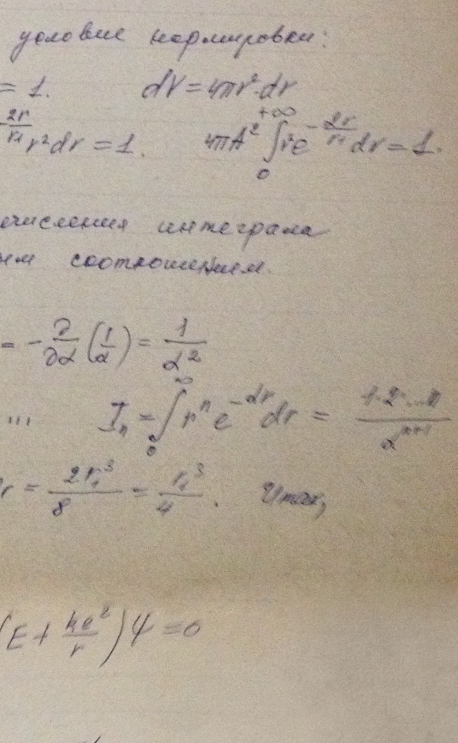 условие нормировки:
= 1. dV = 4πr²·dr
e^{-2r/r₁} r²dr = 1. 4πA² ∫₀^{+∞} r²e^{-2r/r₁} dr = 1.
числения интеграла
соотношением.
= -∂/∂α (1/α) = 1/α²
... Iₙ = ∫₀^∞ rⁿ e^{-αr} dr = 1·2·...n / α^{n+1}
r = 2r₁³/8 = r₁³/4. Итак,
(E + ke²/r)Ψ = 0